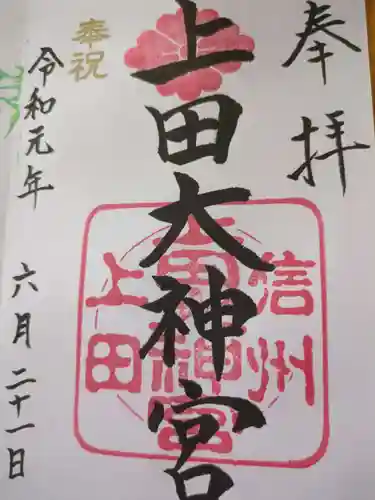 奉拝
上田大神宮
奉祝
令和元年 六月二十一日
信州
上田